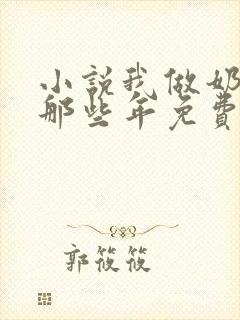 小说我做奶
那些年免费
郭筱筱